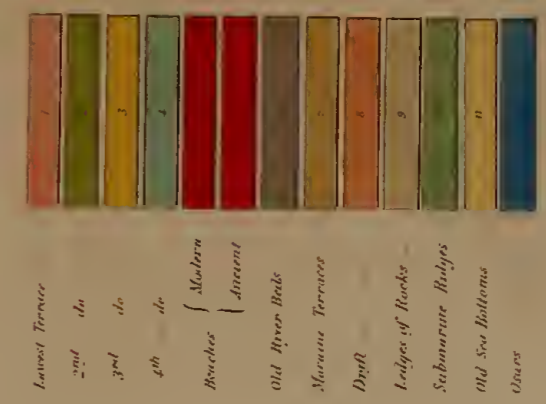 Lowest Terrace 1
2nd do
3rd do 3
4th do 4
Beaches { Modern
{ Ancient
Old River Beds
Moraine Terraces 7
Drift 8
Ledges of Rocks 9
Submarine Ridges
Old Sea Bottoms 11
Osars